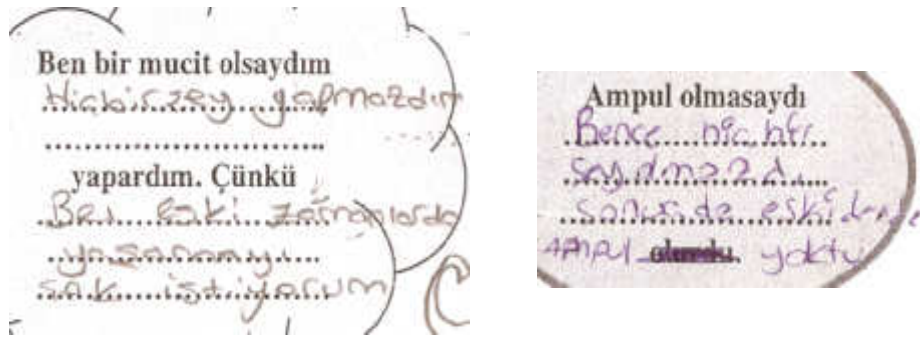 Ben bir mucit olsaydım
Hiçbirşey yapmazdım
yapardım. Çünkü
Ben eski zamanlarda
yaşamayı
şok istiyorum
Ampul olmasaydı
Bence hiç bir
şey olmazdı
sonunda eskiden de
ampul olurdu. yoktu